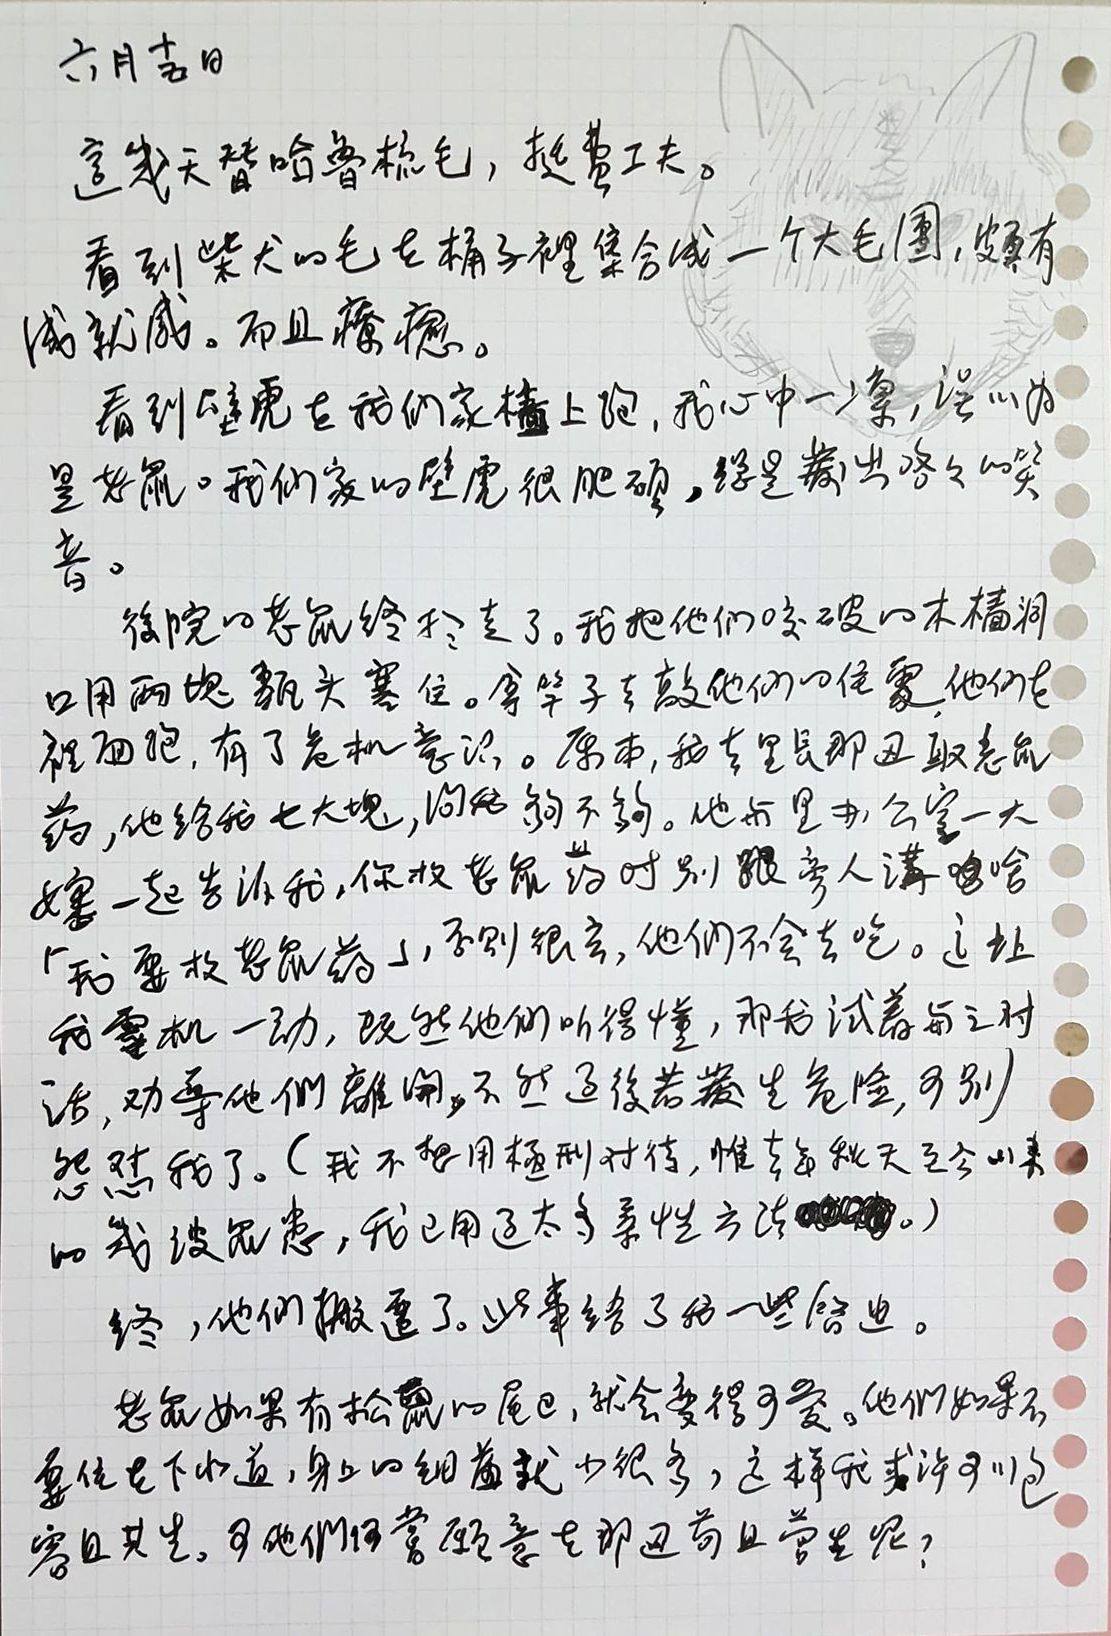 六月十五日
這幾天替哈魯梳毛，挺費工夫。
看到柴犬的毛在桶子裡集合成一个大毛團，頗有
成就感。而且療癒。
看到壁虎在我们家墙上跑，我心中一凜，误以为
是老鼠。我们家的壁虎很肥碩，總是發出咯々的笑
音。
後院的老鼠終於走了。我把他們咬破的木牆洞
口用兩塊甎头塞住。拿竿子去敲他们的住處，他们在
裡面跑，有了危机意识。原本，我去里長那边取老鼠
药，他給我七大塊，问我夠不夠。他与里办公室一大
嬸一起告诉我，你放老鼠药时别跟旁人講啥
「我要放老鼠药」，否則很玄，他們不会去吃。这让
我靈机一动，既然他们听得懂，那我试着与之对
话，劝導他們離開，不然过後若發生危险，可别
怨怼我了。（我不想用極刑对待，惟去年秋天至今以来
的幾波鼠患，我已用过太多柔性方法。）
終，他們搬遷了。此事给了我一些啟迪。
老鼠如果有松鼠的尾巴，就会变得可爱。他們如果不
要住在下水道，身上的细菌就少很多，这样我或许可以包
容且共生。可他們何嘗願意在那边苟且營生呢？